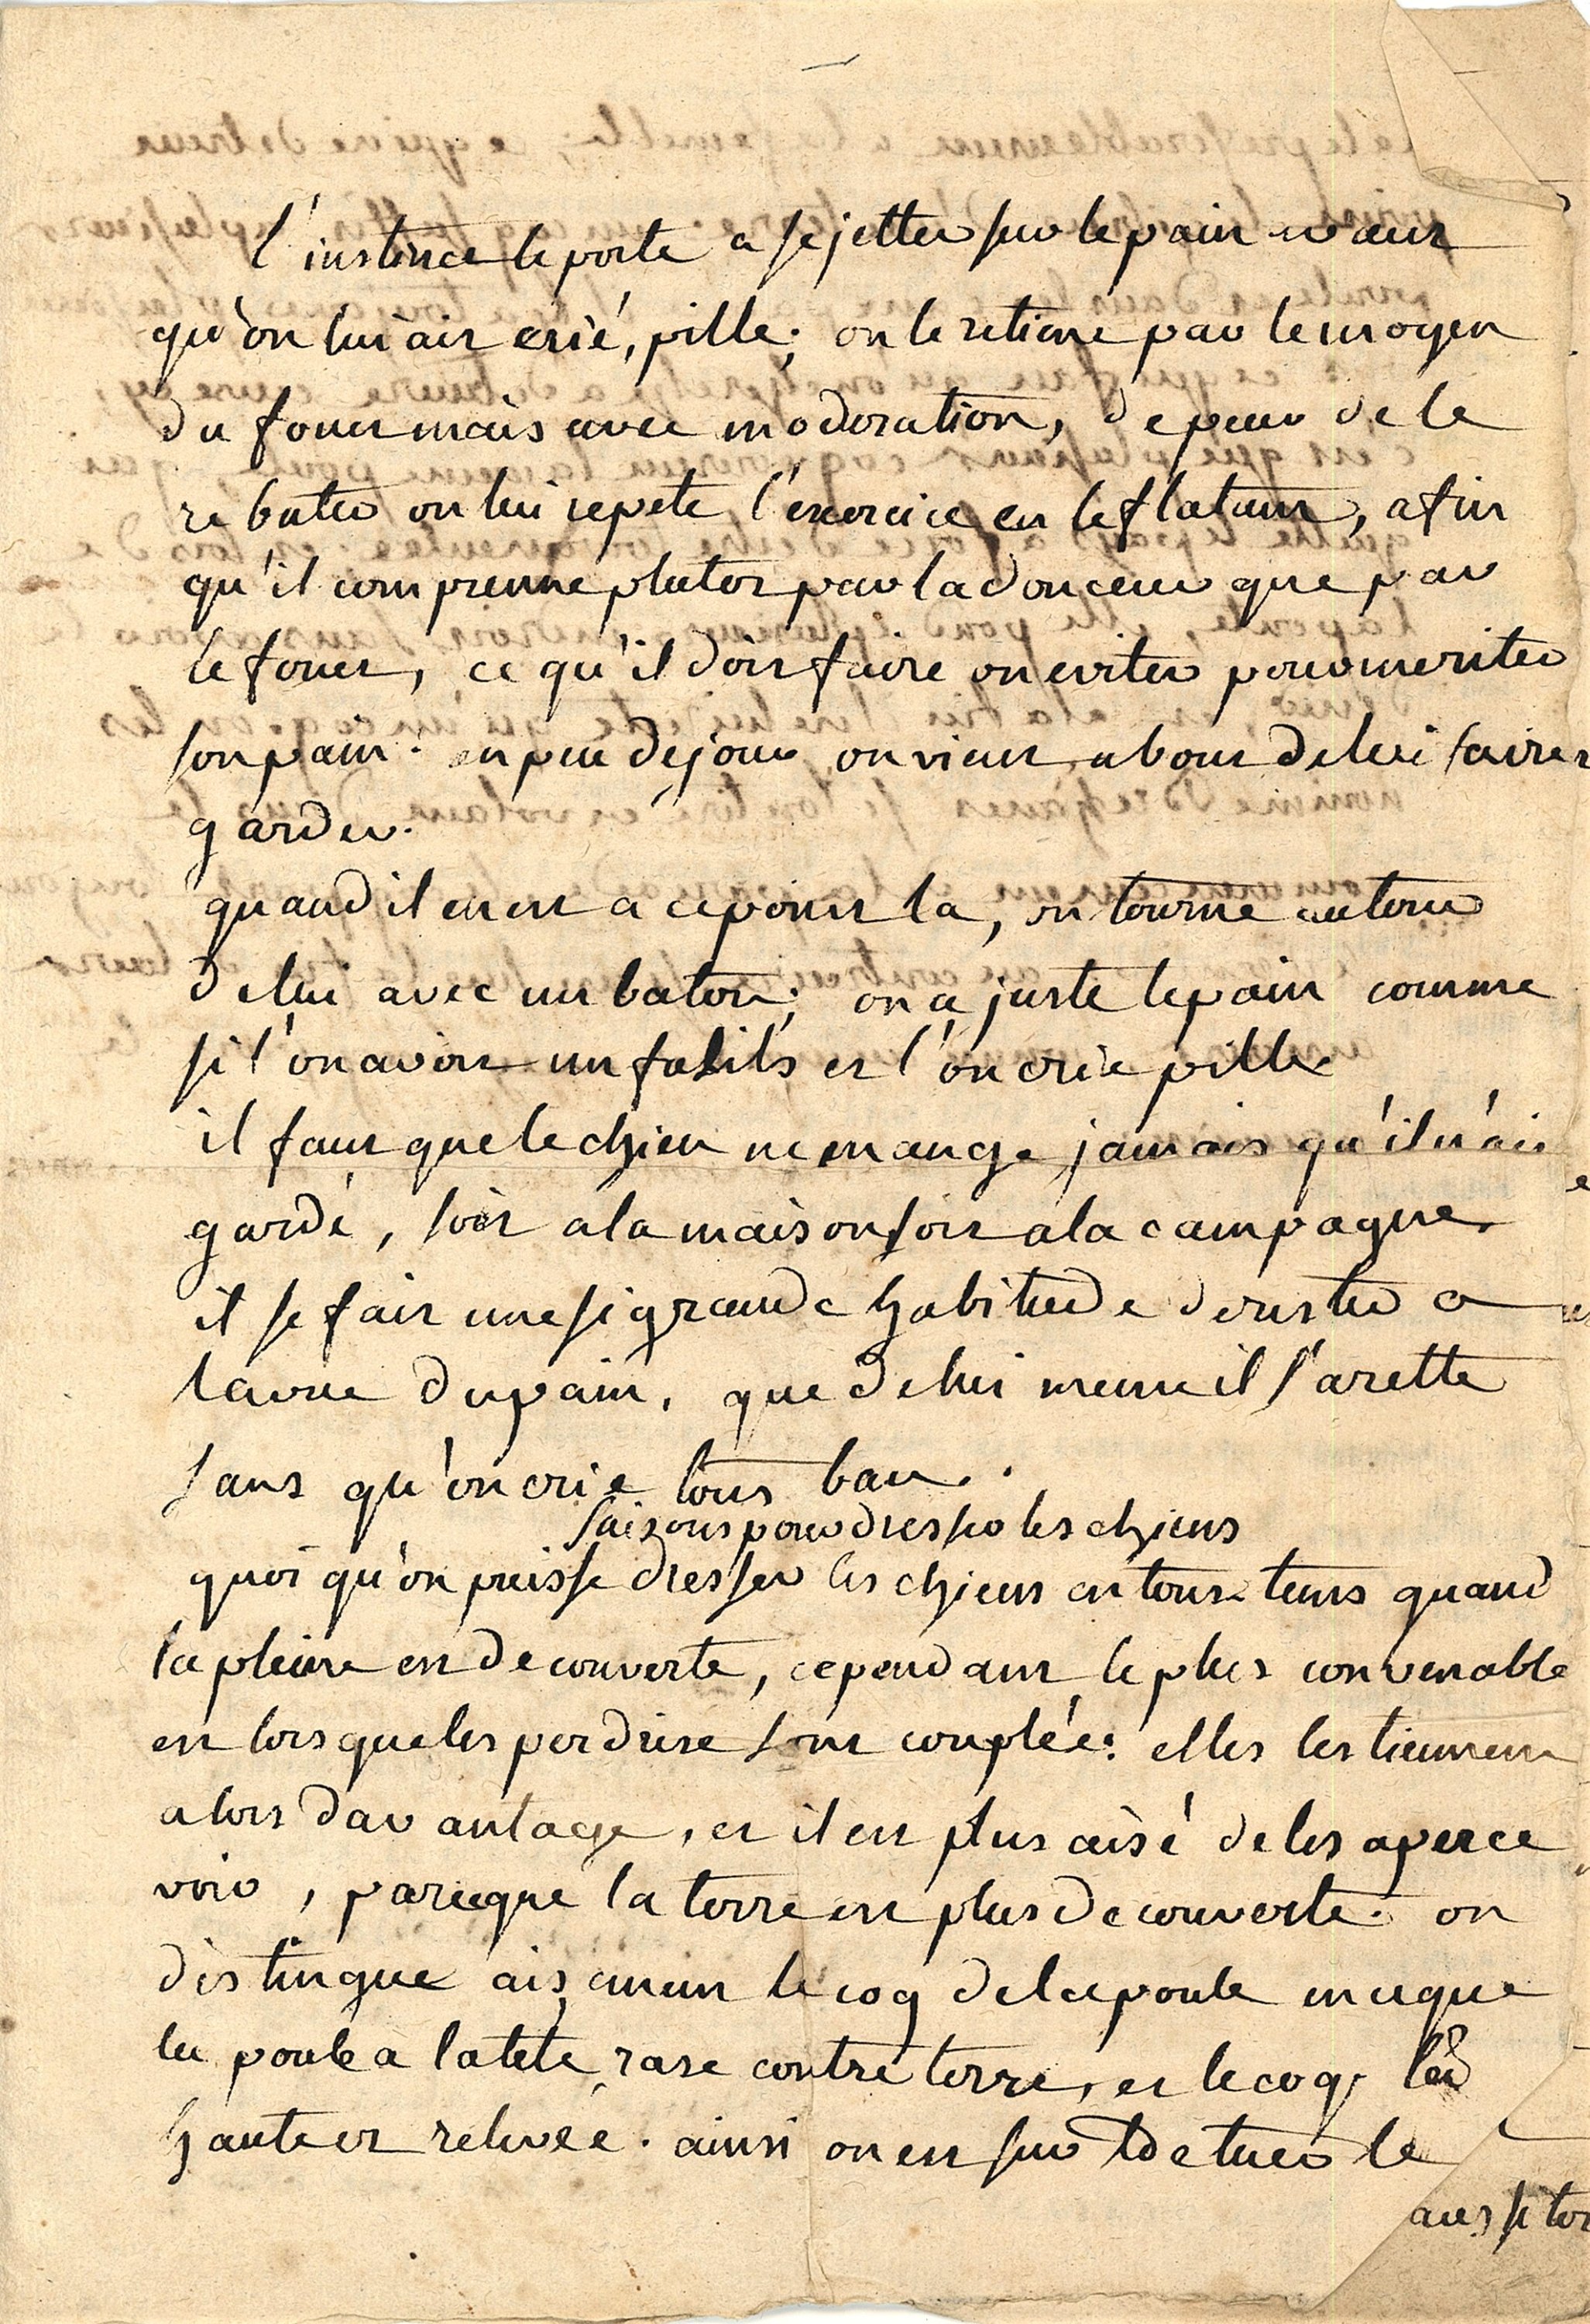 l'instince le porte a se jetter sur le pain avant
qu'on lui ait crié, pille; on le retient par le moyen
du fouet mais avec moderation, de peur de le
rebuter on lui repete l'exercice en le flatant, afin
qu'il comprenne plutot par la douceur que par
le fouet, ce qu'il doit faire ou eviter pour meriter
son pain. en peu de jour on vient a bout de lui faire
garder.
quand il en est a ce point la, on tourne autour
de lui avec un baton; on ajuste le pain comme
si l'on avoit un fusils et l'on crie pille
il faut que le chien ne mange jamais qu'il n'ait
gardé, soit a la maison soit a la campagne
il se fait une si grande habitude de rester a
la vue du pain, que de lui meme il s'arette
sans qu'on crie tous bau.
saisons pour dresser les chiens
quoi qu'on puisse dresser les chiens en tous tems quand
la pleine est decouverte, cependant le plus convenable
est lorsque les perdrise sont couplée: elles les tiennent
alors davantage, et il est plus aisé de les aperce
voir, parceque la terre est plus decouverte. on
distingue aisement le coq de la poule en ce que
la poule a la tete rase contre terre, et le coq la
haute et relevée. ainsi on est sur de tuer le
aussitot